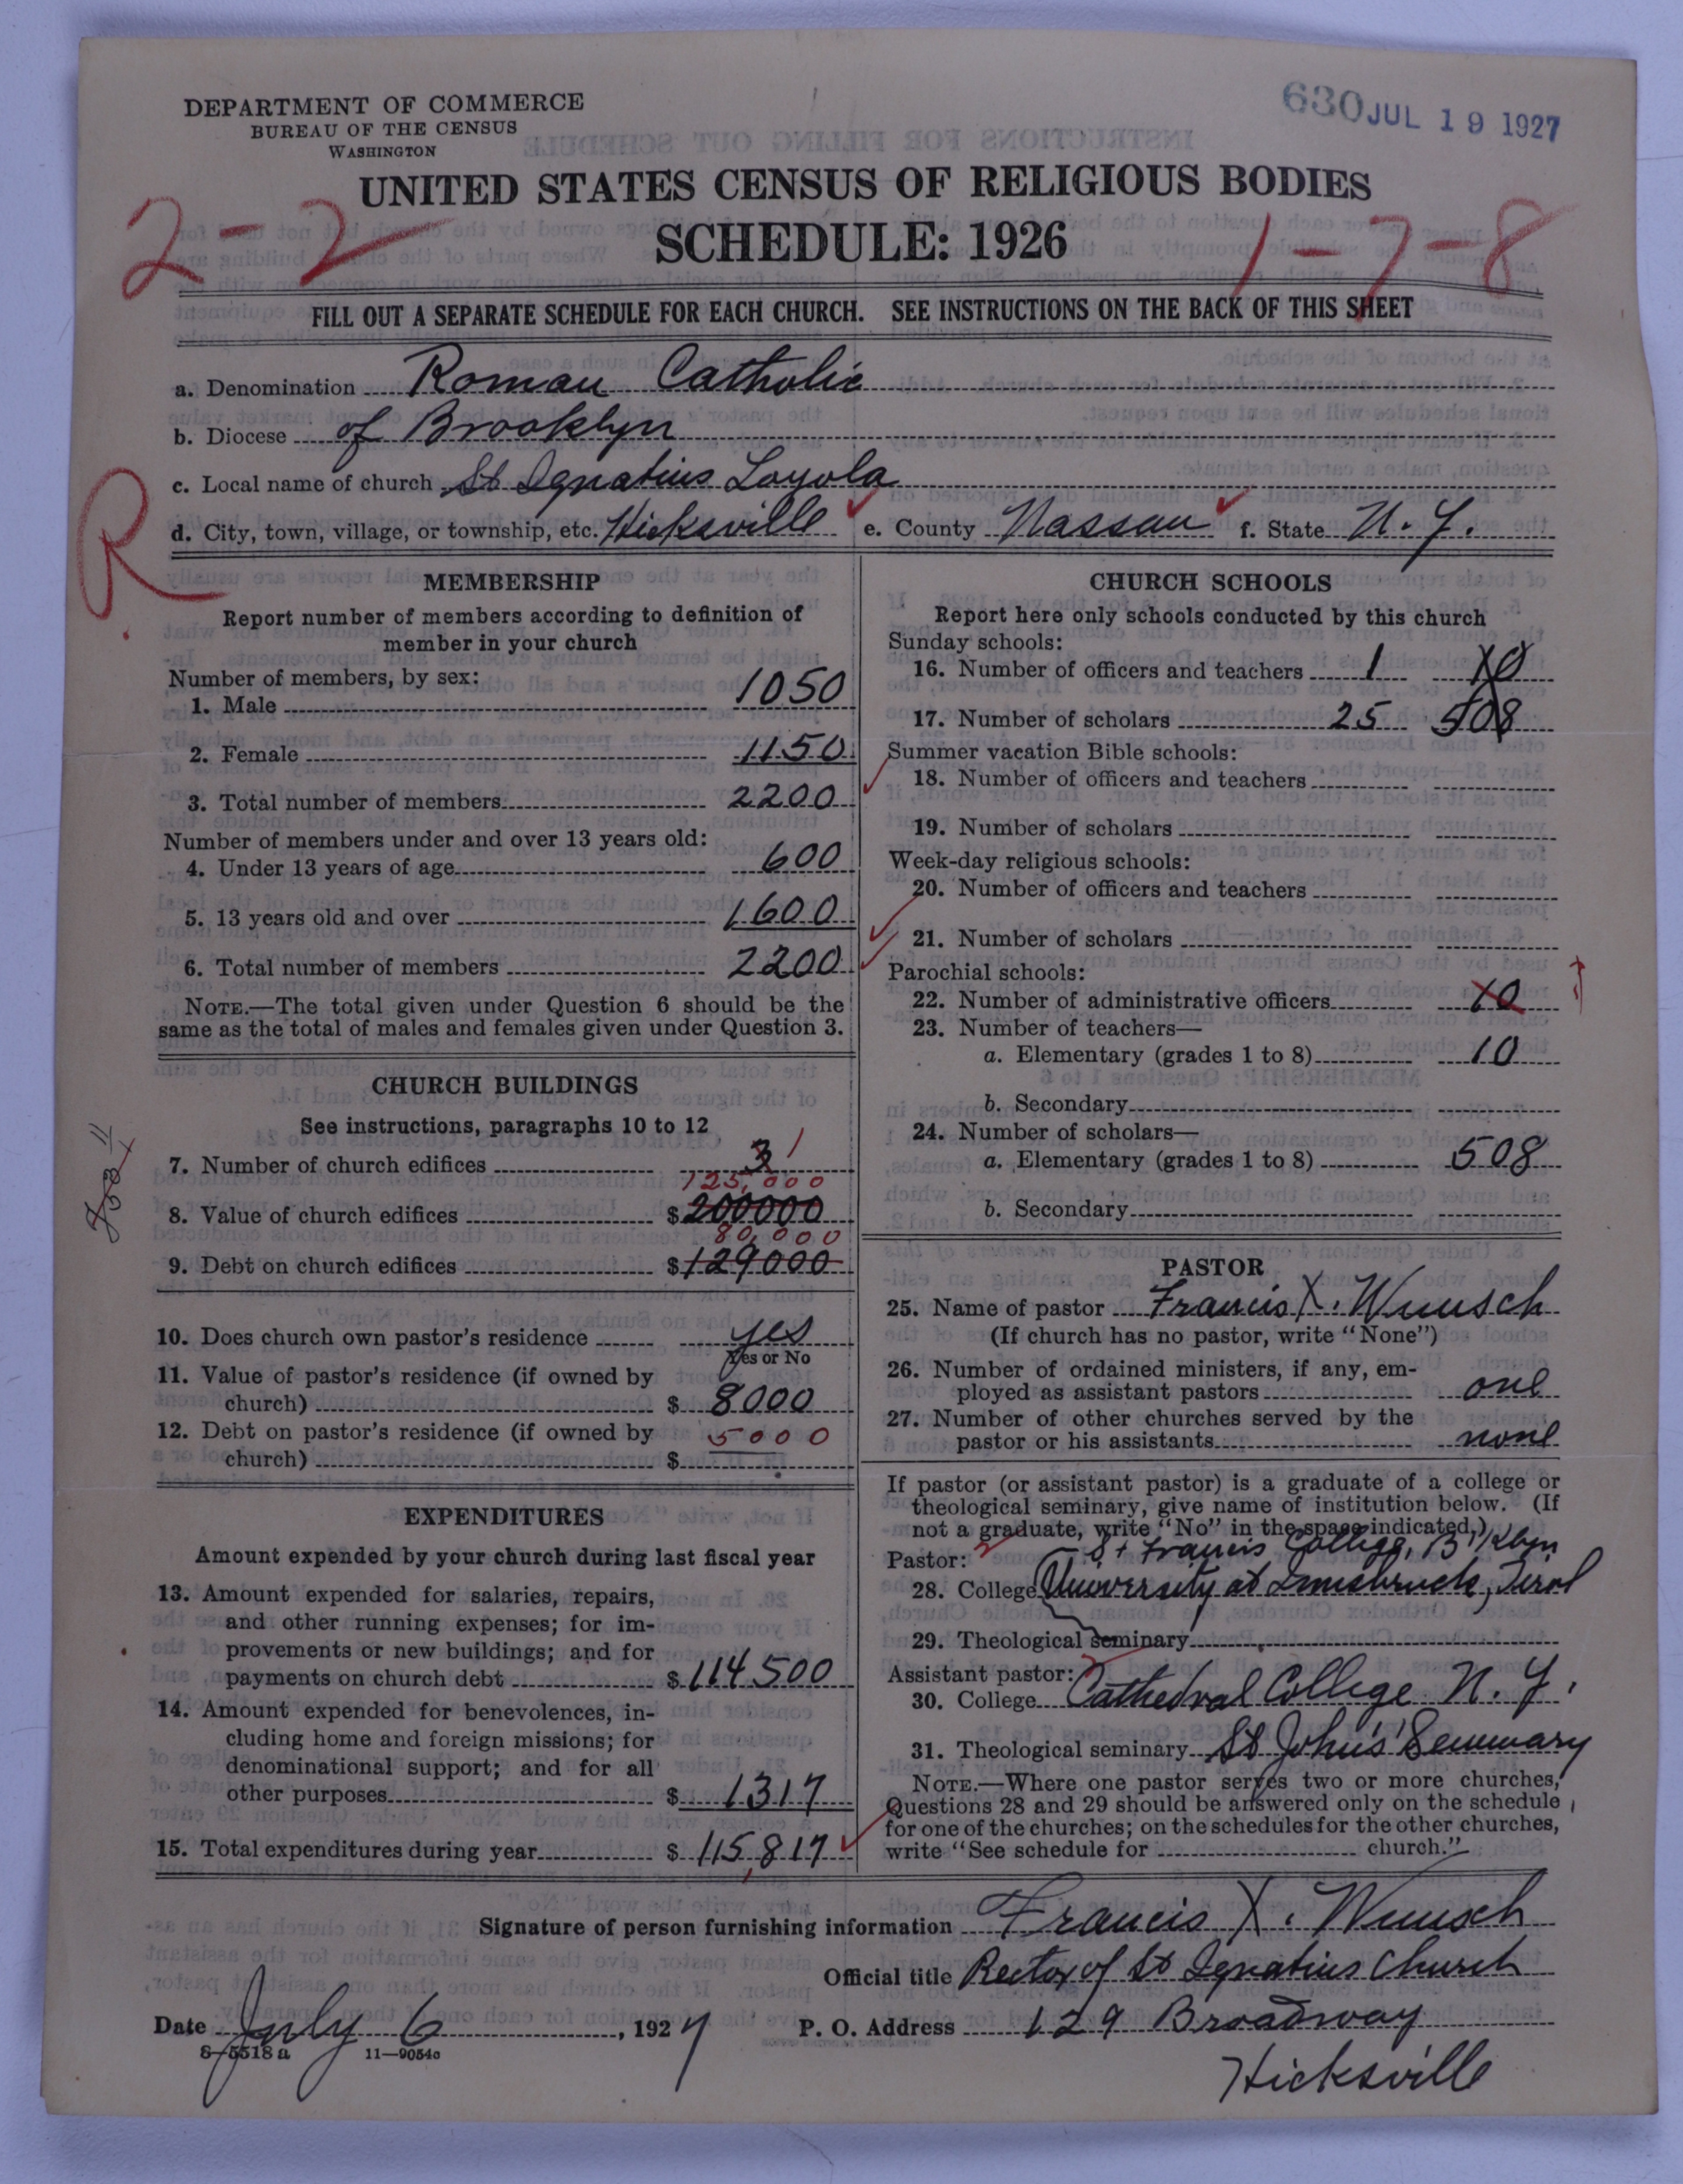 DEPARTMENT OF COMMERCE
BUREAU OF THE CENSUS
WASHINGTON
630 JUL 19 1927
UNITED STATES CENSUS OF RELIGIOUS BODIES
2-2
SCHEDULE: 1926
1-7-8
FILL OUT A SEPARATE SCHEDULE FOR EACH CHURCH. SEE INSTRUCTIONS ON THE BACK OF THIS SHEET
a. Denomination Roman Catholic
b. Diocese of Brooklyn
c. Local name of church St Ignatius Loyola
R
d. City, town, village, or township, etc. Hicksville e. County Nassau f. State N. Y.
MEMBERSHIP
Report number of members according to definition of
member in your church
Number of members, by sex:
1. Male 1050
2. Female 1150
3. Total number of members 2200
Number of members under and over 13 years old:
4. Under 13 years of age 600
5. 13 years old and over 1600
6. Total number of members 2200
NOTE.—The total given under Question 6 should be the
same as the total of males and females given under Question 3.
CHURCH BUILDINGS
See instructions, paragraphs 10 to 12
7. Number of church edifices 3 1
125,000
8. Value of church edifices $ 200000
80,000
9. Debt on church edifices $ 129000
10. Does church own pastor's residence yes
Yes or No
11. Value of pastor's residence (if owned by
church) $ 8000
12. Debt on pastor's residence (if owned by 5000
church) $
EXPENDITURES
Amount expended by your church during last fiscal year
13. Amount expended for salaries, repairs,
and other running expenses; for im-
provements or new buildings; and for
payments on church debt $ 114500
14. Amount expended for benevolences, in-
cluding home and foreign missions; for
denominational support; and for all
other purposes $ 1317
15. Total expenditures during year $ 115,817
CHURCH SCHOOLS
Report here only schools conducted by this church
Sunday schools:
16. Number of officers and teachers 1 10
17. Number of scholars 25 508
Summer vacation Bible schools:
18. Number of officers and teachers
19. Number of scholars
Week-day religious schools:
20. Number of officers and teachers
21. Number of scholars
Parochial schools:
22. Number of administrative officers 10
23. Number of teachers—
a. Elementary (grades 1 to 8) 10
b. Secondary
24. Number of scholars—
a. Elementary (grades 1 to 8) 508
b. Secondary
PASTOR
25. Name of pastor Francis X. Wunsch
(If church has no pastor, write "None")
26. Number of ordained ministers, if any, em-
ployed as assistant pastors one
27. Number of other churches served by the
pastor or his assistants none
If pastor (or assistant pastor) is a graduate of a college or
theological seminary, give name of institution below. (If
not a graduate, write "No" in the space indicated.)
Pastor: St Francis College, B'klyn
28. College University at Innsbruck, Tirol
29. Theological seminary
Assistant pastor:
30. College Cathedral College N. Y.
31. Theological seminary St John's Seminary
NOTE.—Where one pastor serves two or more churches,
Questions 28 and 29 should be answered only on the schedule
for one of the churches; on the schedules for the other churches,
write "See schedule for church."
Signature of person furnishing information Francis X. Wunsch
Official title Rector of St Ignatius Church
Date July 6, 1927 P. O. Address 129 Broadway
8-5518 a 11—9054c
Hicksville